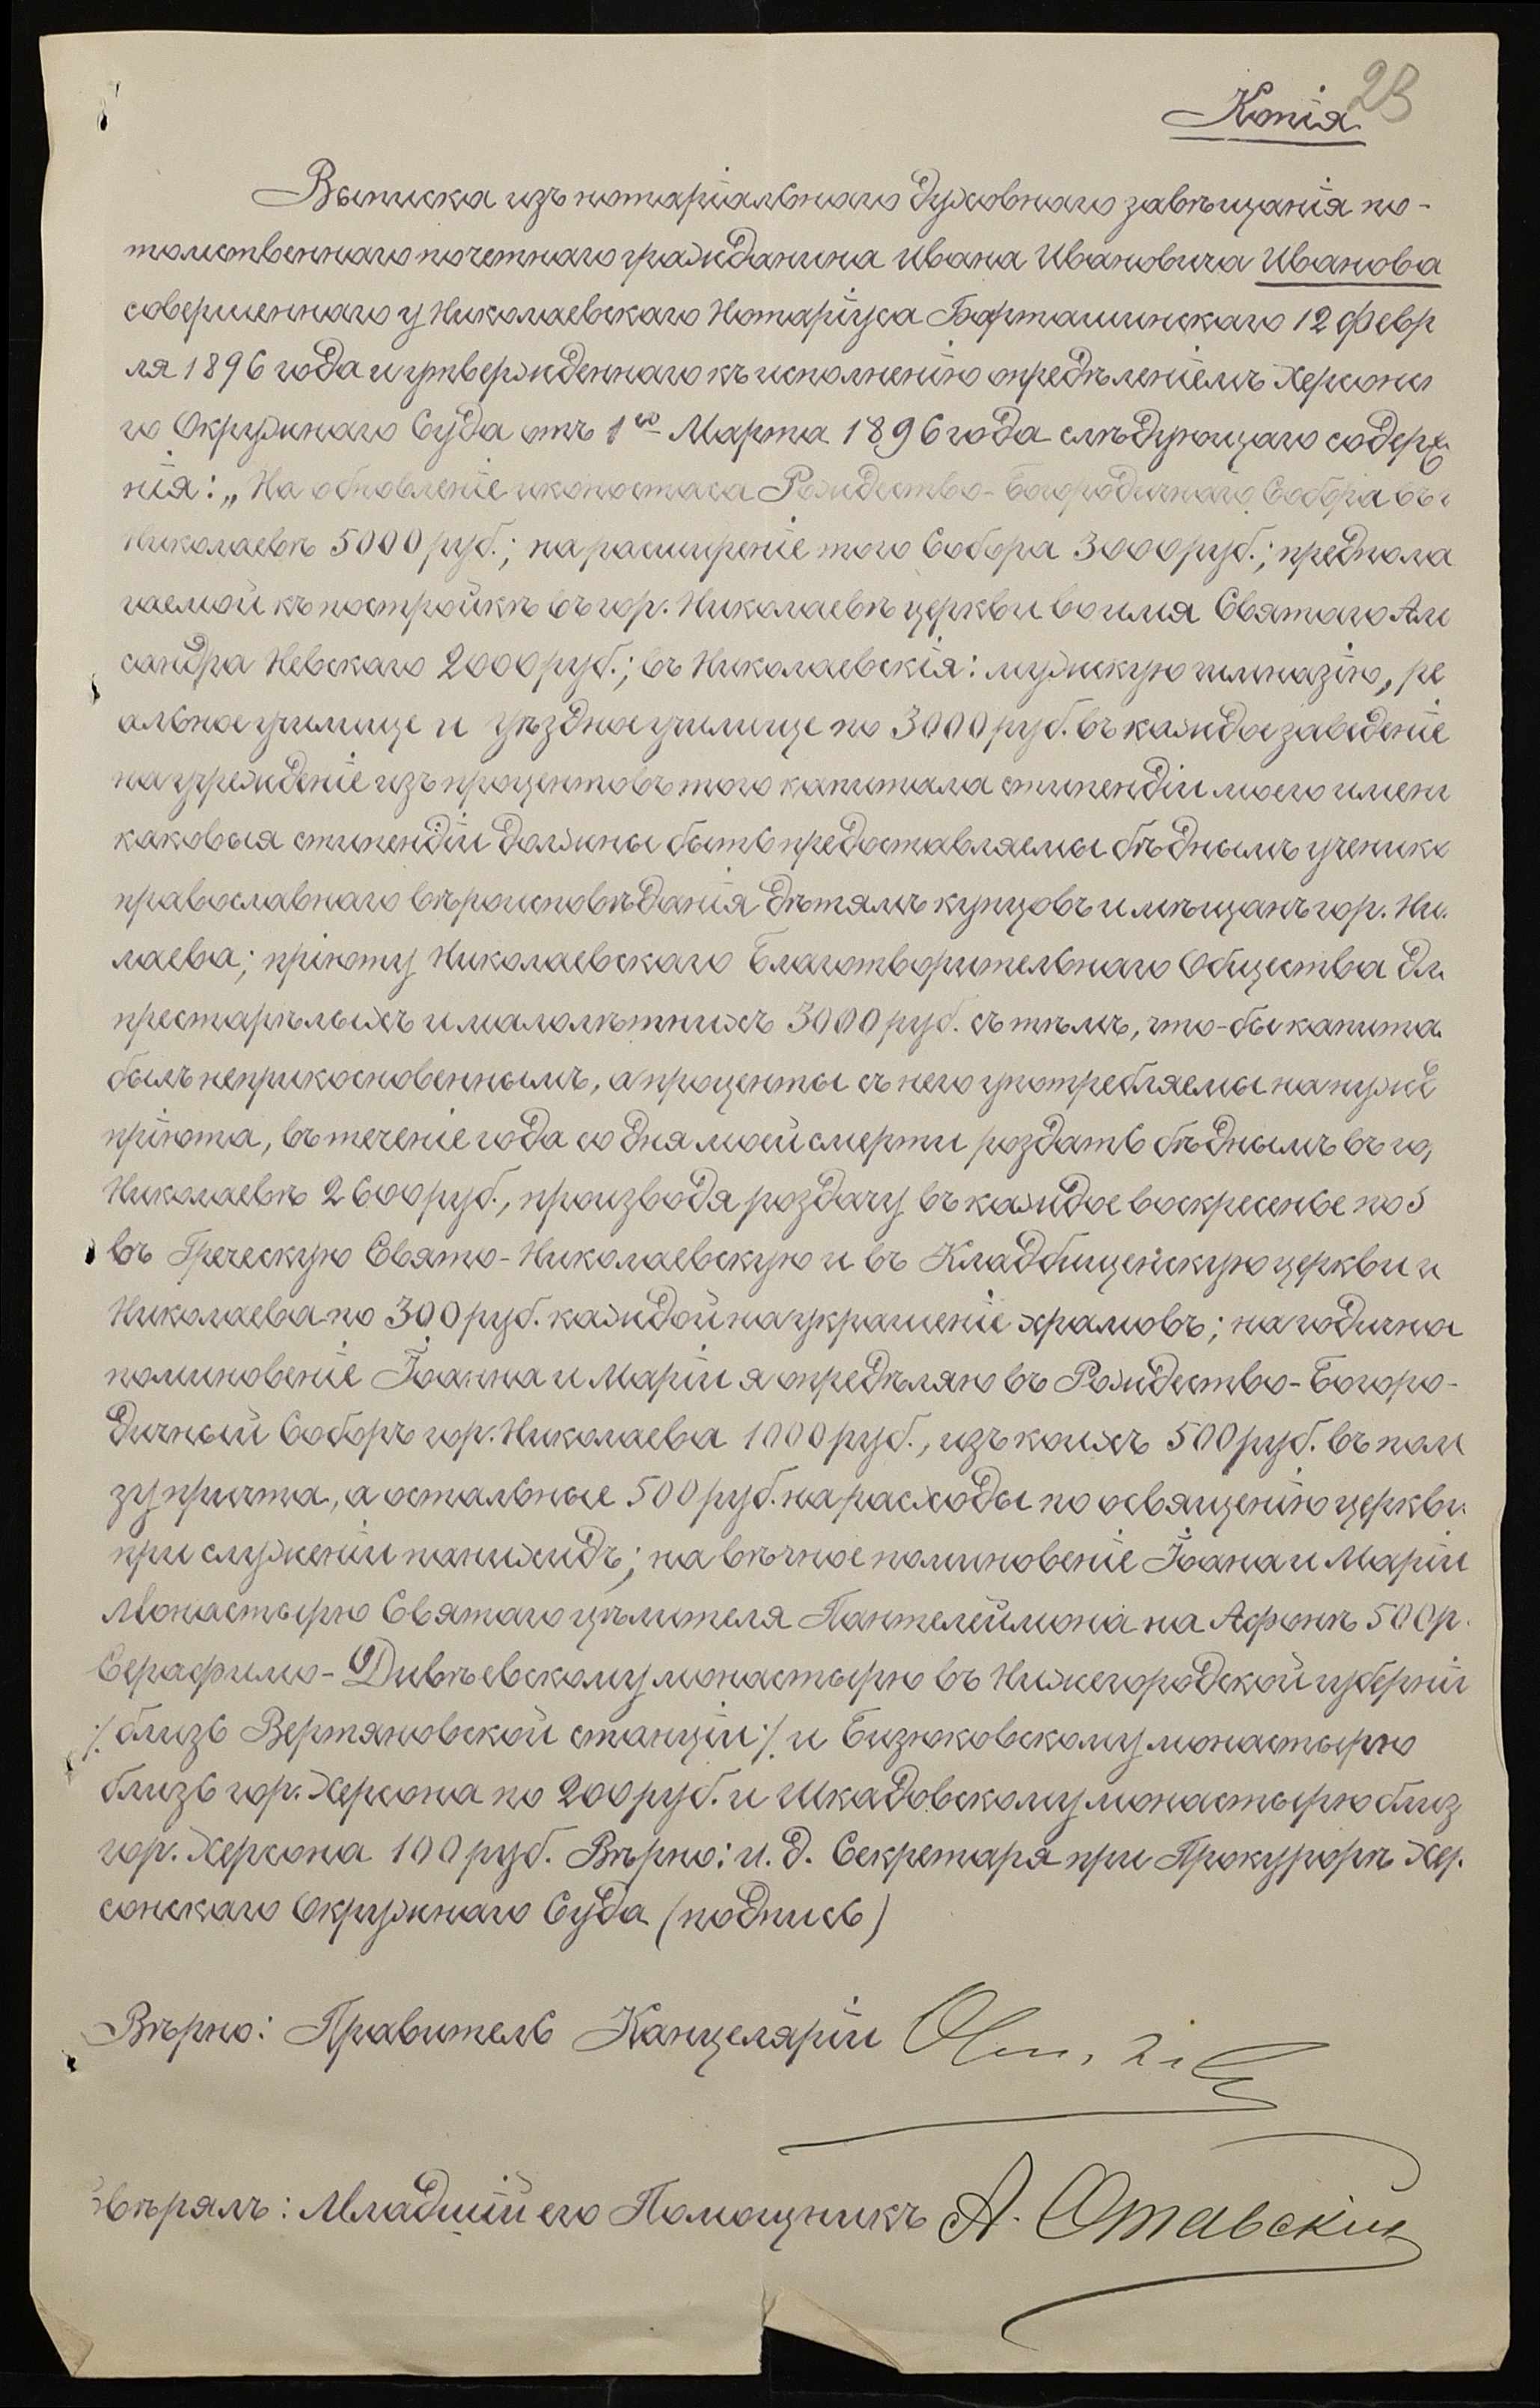 23
Копія
Выписка изъ нотаріальнаго духовнаго завѣщанія по-
томственнаго почетнаго гражданина Ивана Ивановича Иванова
совершеннаго у Николаевскаго Нотаріуса Барташинскаго 12 Февр
ля 1896 года и утвержденнаго къ исполненію опредѣленіемъ Херсонс
го Окружнаго Суда отъ 1го Марта 1896 года слѣдующаго содерж
нія: „На обновленіе иконостаса Рождество-Богородичнаго Собора въ г
Николаевѣ 5000 руб.; на расширеніе того Собора 3000 руб.; предпола
гаемой къ постройкѣ въ гор. Николаевѣ церкви во имя Святаго Але
сандра Невскаго 2000 руб.; въ Николаевскія: мужскую гимназію, ре
альное училище и уѣздное училище по 3000 руб. въ каждое заведеніе
на учрежденіе изъ процентовъ того капитала стипендіи моего имени
каковыя стипендіи должны быть предоставляемы бѣднымъ ученика
православнаго вѣроисповѣданія дѣтямъ купцовъ и мѣщанъ гор. Ни
лаева; пріюту Николаевскаго Благотворительнаго Общества для
престарѣлыхъ и малолѣтнихъ 3000 руб. съ тѣмъ, что-бы капита
былъ неприкосновеннымъ, а проценты съ него употребляемы на нужд
пріюта, въ теченіе года со дня моей смерти роздать бѣднымъ въ го
Николаевѣ 2600 руб., производя роздачу въ каждое воскресенье по 5
въ Греческую Свято-Николаевскую и въ Кладбищенскую церкви г
Николаева по 300 руб. каждой на украшеніе храмовъ; на годично
поминовеніе Іоанна и Маріи я опредѣляю въ Рождество-Богоро-
дичный Соборъ гор. Николаева 1000 руб., изъ коихъ 500 руб. въ пол
зу причта, а остальные 500 руб. на расходы по освященію церкви
при служеніи панихидъ; на вѣчное поминовеніе Іоана и Маріи
Монастырю Святаго цѣлителя Пантелеймона на Афонѣ 500 р.
Серафимо-Дивѣевскому монастырю въ Нижегородской губерніи
/: близь Вертяновской станціи :/ и Бизюковскому монастырю
близь гор. Херсона по 200 руб. и Шкадовскому монастырю близ
гор. Херсона 100 руб. Вѣрно: и. д. Секретаря при Прокурорѣ Хер
сонскаго Окружнаго Суда (подпись)
Вѣрно: Правитель Канцеляріи
вѣрялъ: Младшій его Помощникъ А. Отавскій